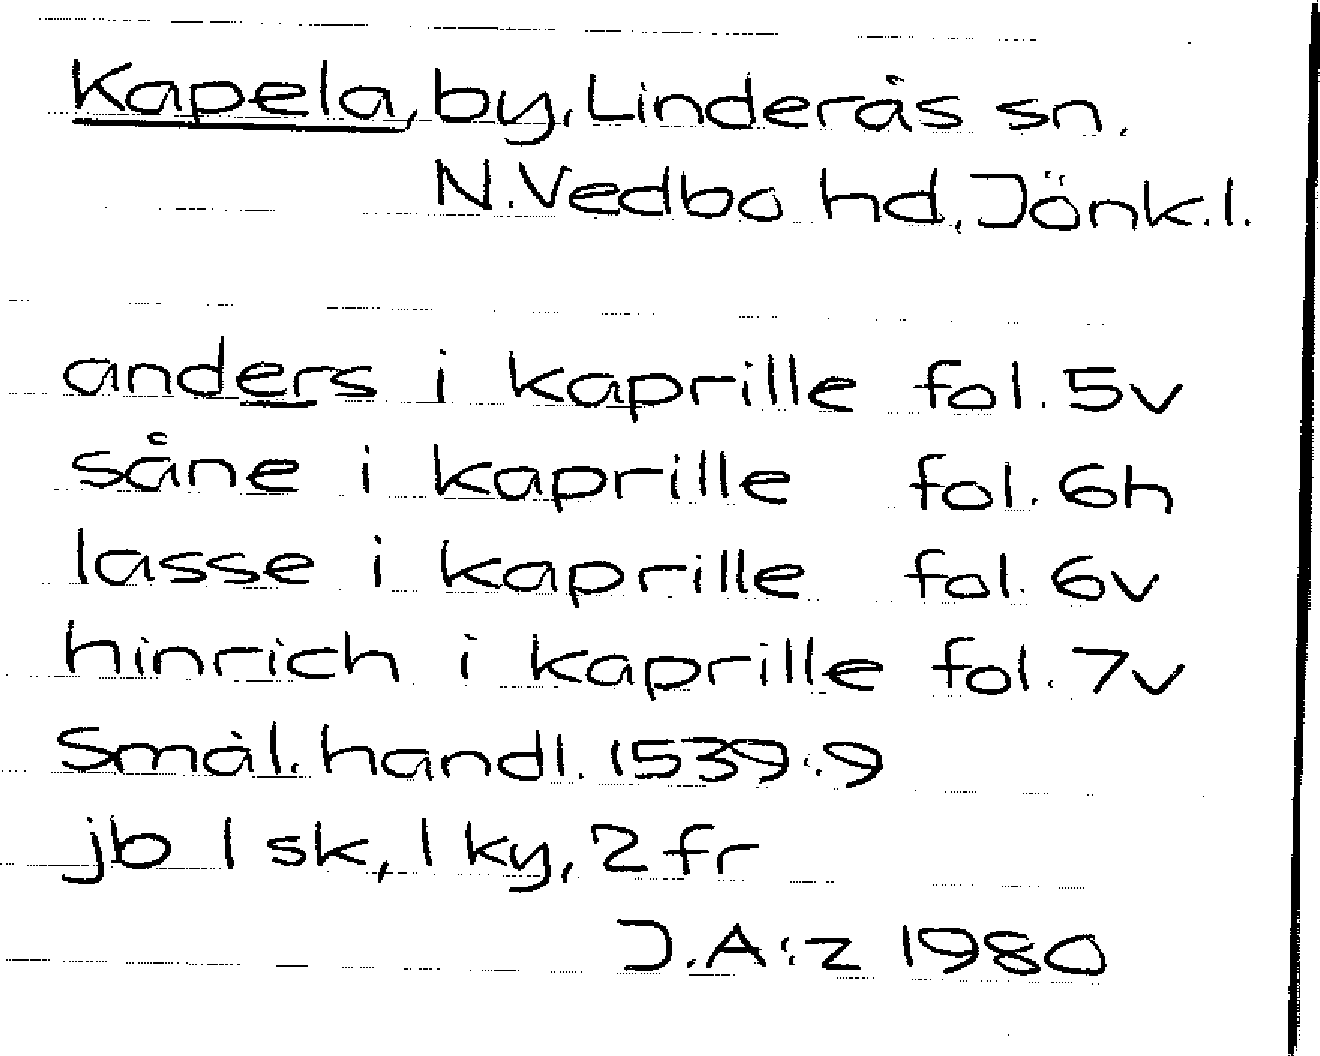 Kapela, by, Linderås sn.
N. Vedbo hd, Jönk. l.
anders i kaprille fol. 5v
såne i kaprille fol. 6h
lasse i kaprille fol. 6v
hinrich i kaprille fol. 7v
Smål. handl. 1539:9
jb 1 sk, 1 ky, 2 fr
J.A:z 1980